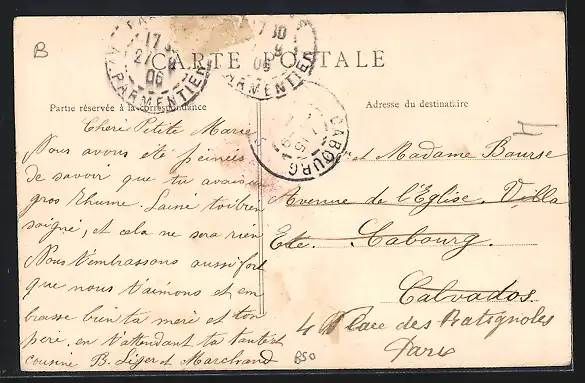 B
PARIS
17
27
06
AV. PARMENTIER
17 30
06
PARMENTIER
CARTE POSTALE
Partie réservée à la correspondance
Adresse du destinataire
CABOURG
Cheri Petite Marie
Nous avons été peinées
de savoir que tu avais un
gros rhume. toi bien
soigné, et cela ne sera rien
Nous t'embrassons aussi fort
que nous t'aimons et em
brasse bien ta mère et ton
père, en t'attendant ta tante et
cousine B. Léger et Marchand
et Madame Bourse
Avenue de l'Eglise. Villa
Ete. Cabourg.
Calvados
4 Place des Batignoles
Paris
B50